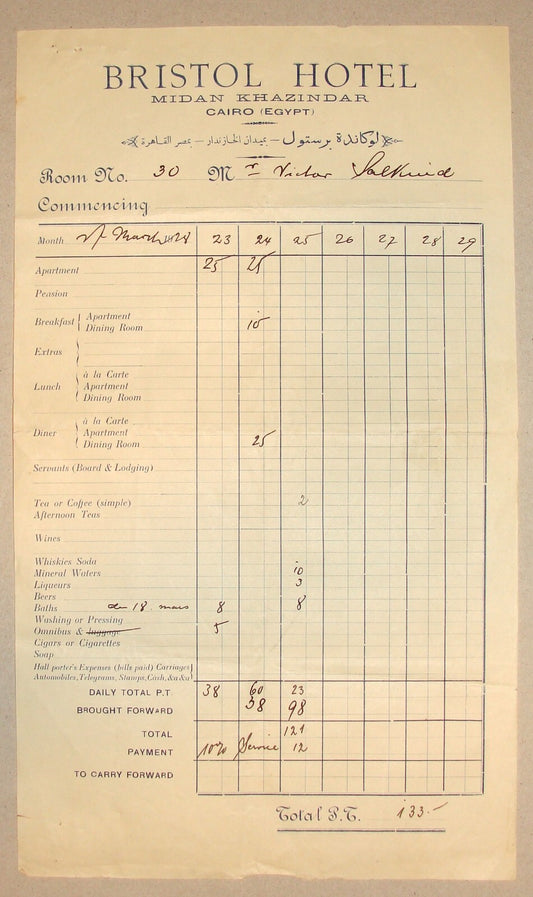 BRISTOL HOTEL
MIDAN KHAZINDAR
CAIRO (EGYPT)
لوكاندة برستول – بميدان الخازندار – بمصر القاهرة
Room No. 30 Mr Victor Salkind
Commencing
Month of March 1928 23 24 25 26 27 28 29
Apartment 25 25
Pension
Breakfast { Apartment
Dining Room 10
Extras
Lunch { à la Carte
Apartment
Dining Room
Diner { à la Carte
Apartment
Dining Room 25
Servants (Board & Lodging)
Tea or Coffee (simple) 2
Afternoon Teas
Wines
Whiskies Soda
Mineral Waters 10
Liqueurs 3
Beers
Baths 18 mars 8 8
Washing or Pressing
Omnibus & luggage 5
Cigars or Cigarettes
Soap
Hall porter's Expenses (bills paid) Carriages }
Automobiles, Telegrams, Stamps, Cash, &a &a }
DAILY TOTAL P.T. 38 60 23
BROUGHT FORWARD 38 98
TOTAL 121
PAYMENT 10% Service 12
TO CARRY FORWARD
Total P.T. 133.-